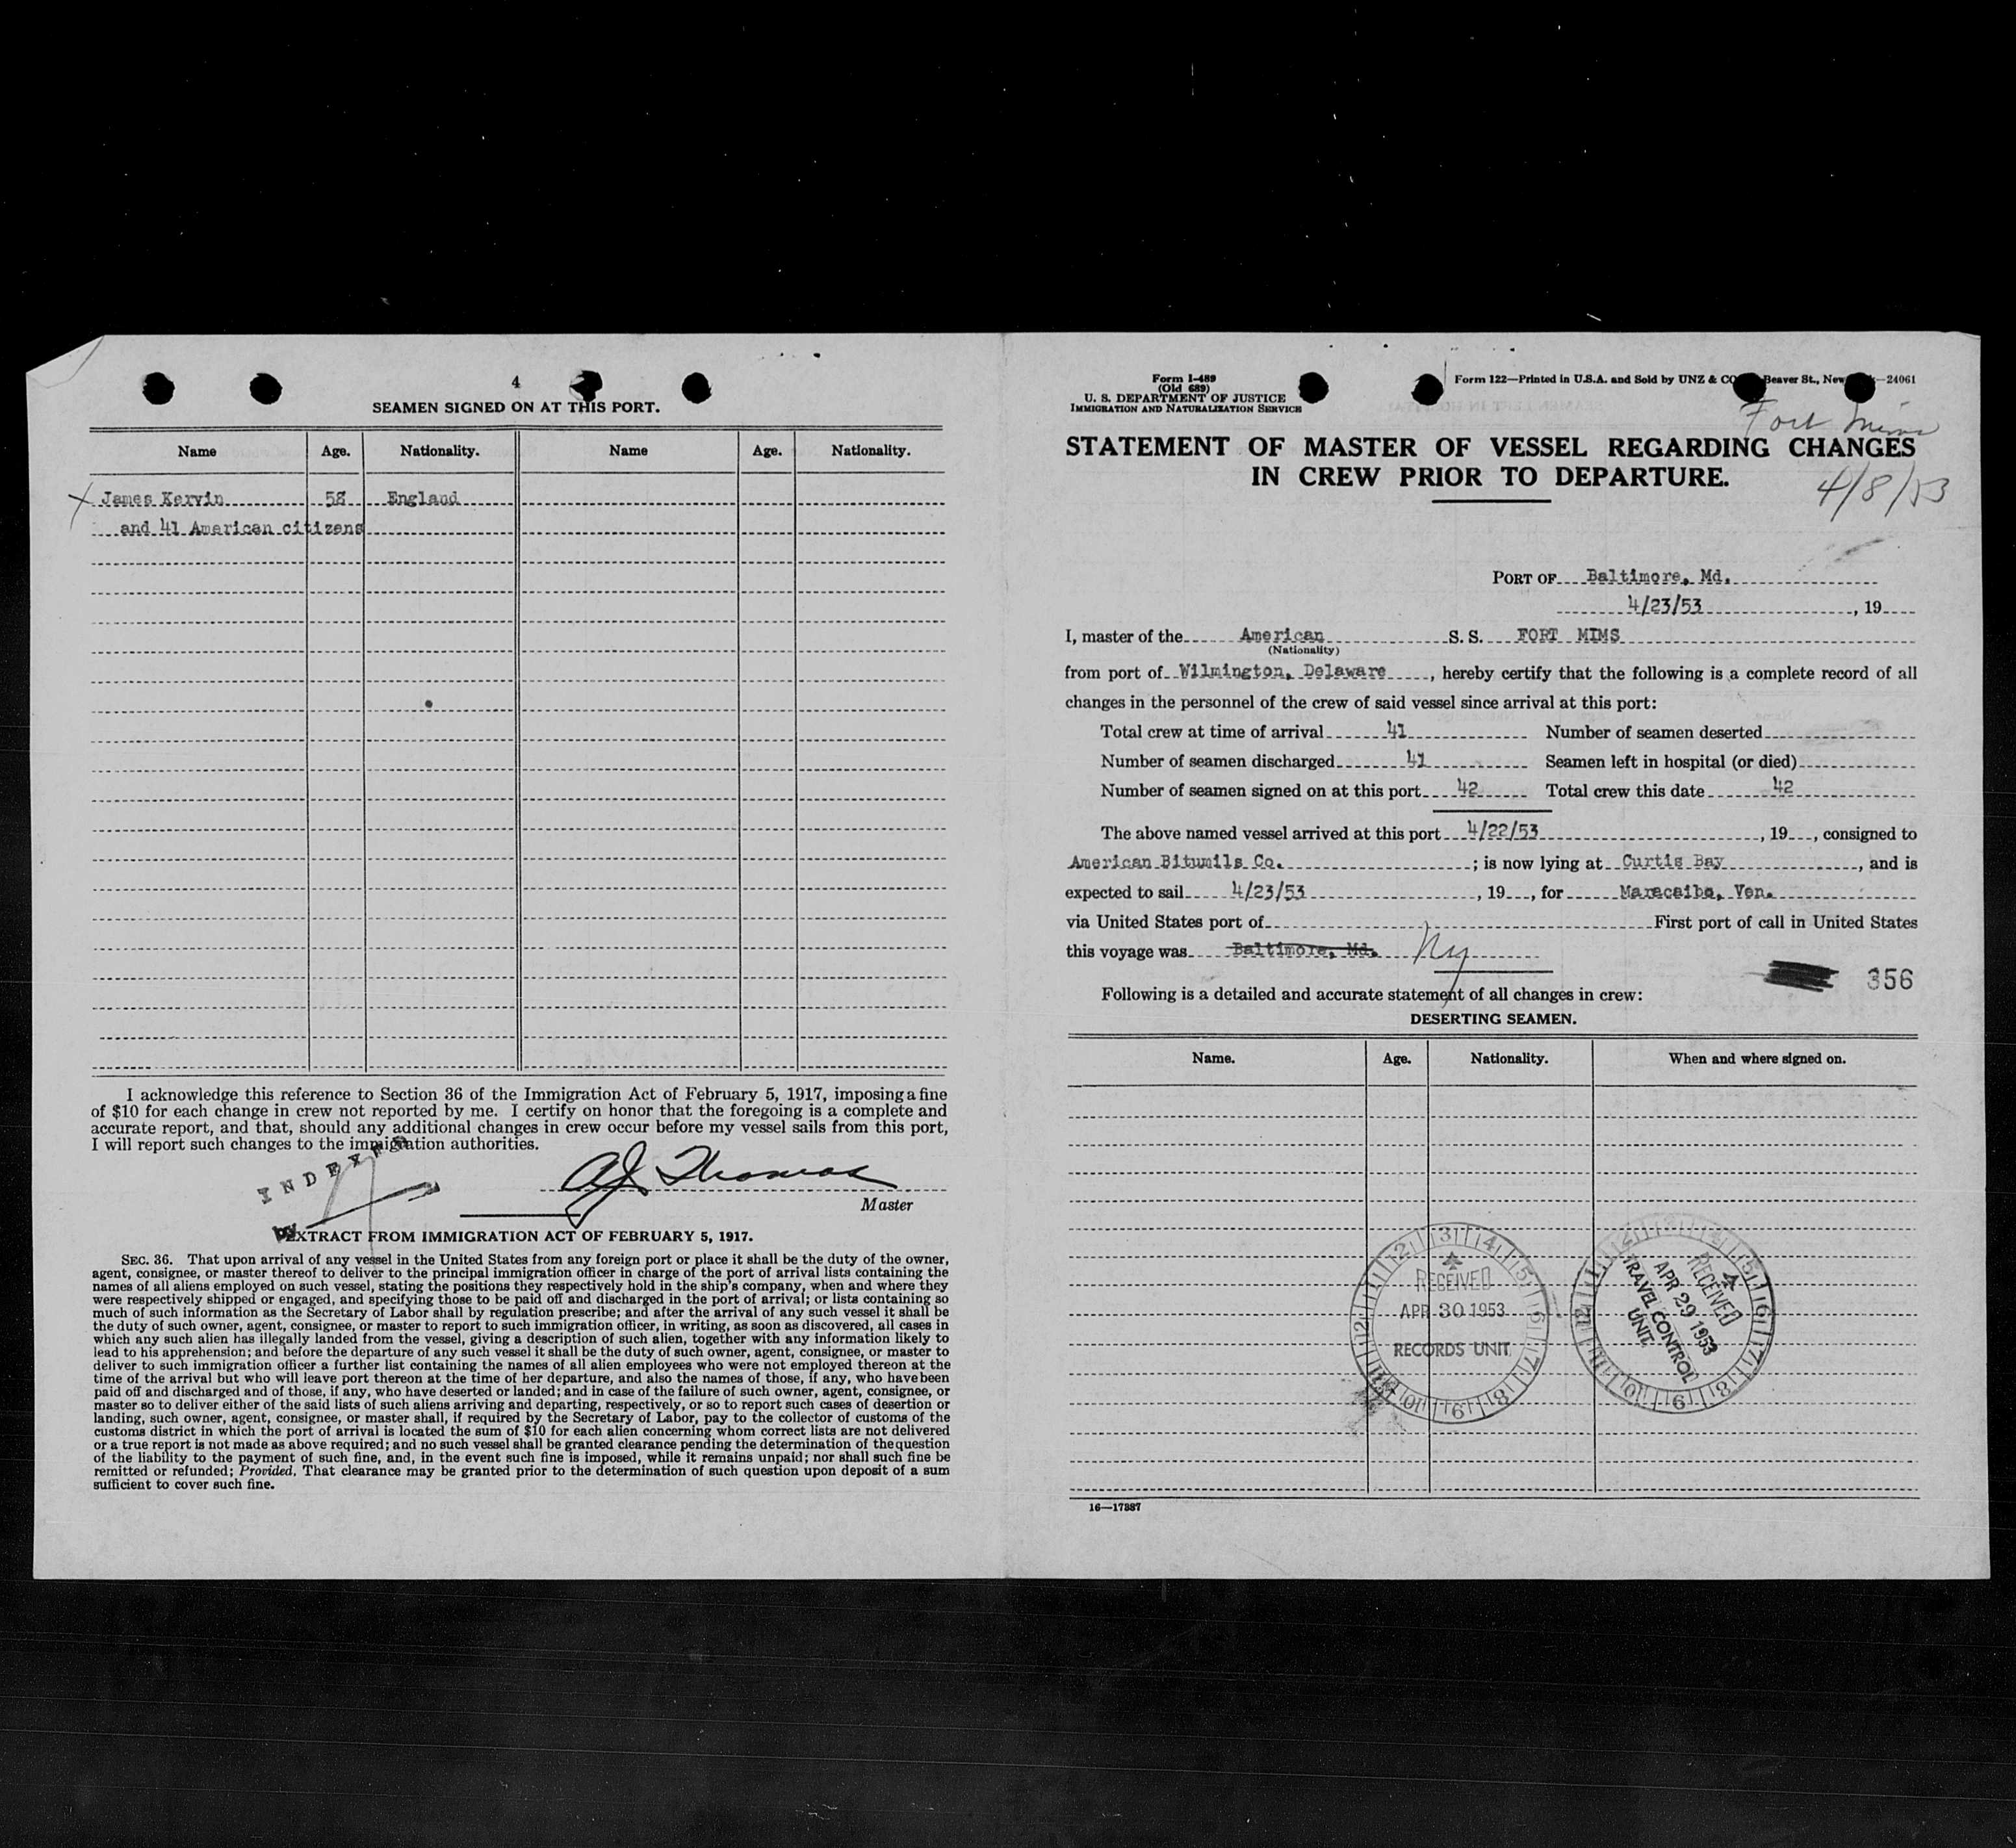 4
SEAMEN SIGNED ON AT THIS PORT.
Name Age. Nationality. Name Age. Nationality.
James Kervin 58 England
and 41 American citizens
I acknowledge this reference to Section 36 of the Immigration Act of February 5, 1917, imposing a fine
of $10 for each change in crew not reported by me. I certify on honor that the foregoing is a complete and
accurate report, and that, should any additional changes in crew occur before my vessel sails from this port,
I will report such changes to the immigration authorities.
INDEXED
by
A J Thomas
Master
EXTRACT FROM IMMIGRATION ACT OF FEBRUARY 5, 1917.
SEC. 36. That upon arrival of any vessel in the United States from any foreign port or place it shall be the duty of the owner,
agent, consignee, or master thereof to deliver to the principal immigration officer in charge of the port of arrival lists containing the
names of all aliens employed on such vessel, stating the positions they respectively hold in the ship's company, when and where they
were respectively shipped or engaged, and specifying those to be paid off and discharged in the port of arrival; or lists containing so
much of such information as the Secretary of Labor shall by regulation prescribe; and after the arrival of any such vessel it shall be
the duty of such owner, agent, consignee, or master to report to such immigration officer, in writing, as soon as discovered, all cases in
which any such alien has illegally landed from the vessel, giving a description of such alien, together with any information likely to
lead to his apprehension; and before the departure of any such vessel it shall be the duty of such owner, agent, consignee, or master to
deliver to such immigration officer a further list containing the names of all alien employees who were not employed thereon at the
time of the arrival but who will leave port thereon at the time of her departure, and also the names of those, if any, who have been
paid off and discharged and of those, if any, who have deserted or landed; and in case of the failure of such owner, agent, consignee, or
master so to deliver either of the said lists of such aliens arriving and departing, respectively, or so to report such cases of desertion or
landing, such owner, agent, consignee, or master shall, if required by the Secretary of Labor, pay to the collector of customs of the
customs district in which the port of arrival is located the sum of $10 for each alien concerning whom correct lists are not delivered
or a true report is not made as above required; and no such vessel shall be granted clearance pending the determination of the question
of the liability to the payment of such fine, and, in the event such fine is imposed, while it remains unpaid; nor shall such fine be
remitted or refunded; Provided, That clearance may be granted prior to the determination of such question upon deposit of a sum
sufficient to cover such fine.
Form I-489
(Old 689)
U. S. DEPARTMENT OF JUSTICE
IMMIGRATION AND NATURALIZATION SERVICE
Form 122—Printed in U.S.A. and Sold by UNZ & CO Beaver St., New —24061
Fort Mims
STATEMENT OF MASTER OF VESSEL REGARDING CHANGES
IN CREW PRIOR TO DEPARTURE.
4/8/53
PORT OF Baltimore, Md.
4/23/53, 19
I, master of the American S. S. FORT MIMS
(Nationality)
from port of Wilmington, Delaware, hereby certify that the following is a complete record of all
changes in the personnel of the crew of said vessel since arrival at this port:
Total crew at time of arrival 41 Number of seamen deserted
Number of seamen discharged 41 Seamen left in hospital (or died)
Number of seamen signed on at this port 42 Total crew this date 42
The above named vessel arrived at this port 4/22/53, 19, consigned to
American Bitumils Co.; is now lying at Curtis Bay, and is
expected to sail 4/23/53, 19, for Maracaibo, Ven.
via United States port of First port of call in United States
this voyage was Baltimore, Md. Ny
356
Following is a detailed and accurate statement of all changes in crew:
DESERTING SEAMEN.
Name. Age. Nationality. When and where signed on.
RECEIVED
APR 30 1953
RECORDS UNIT
RECEIVED
APR 29 1953
TRAVEL CONTROL
UNIT
16—17887